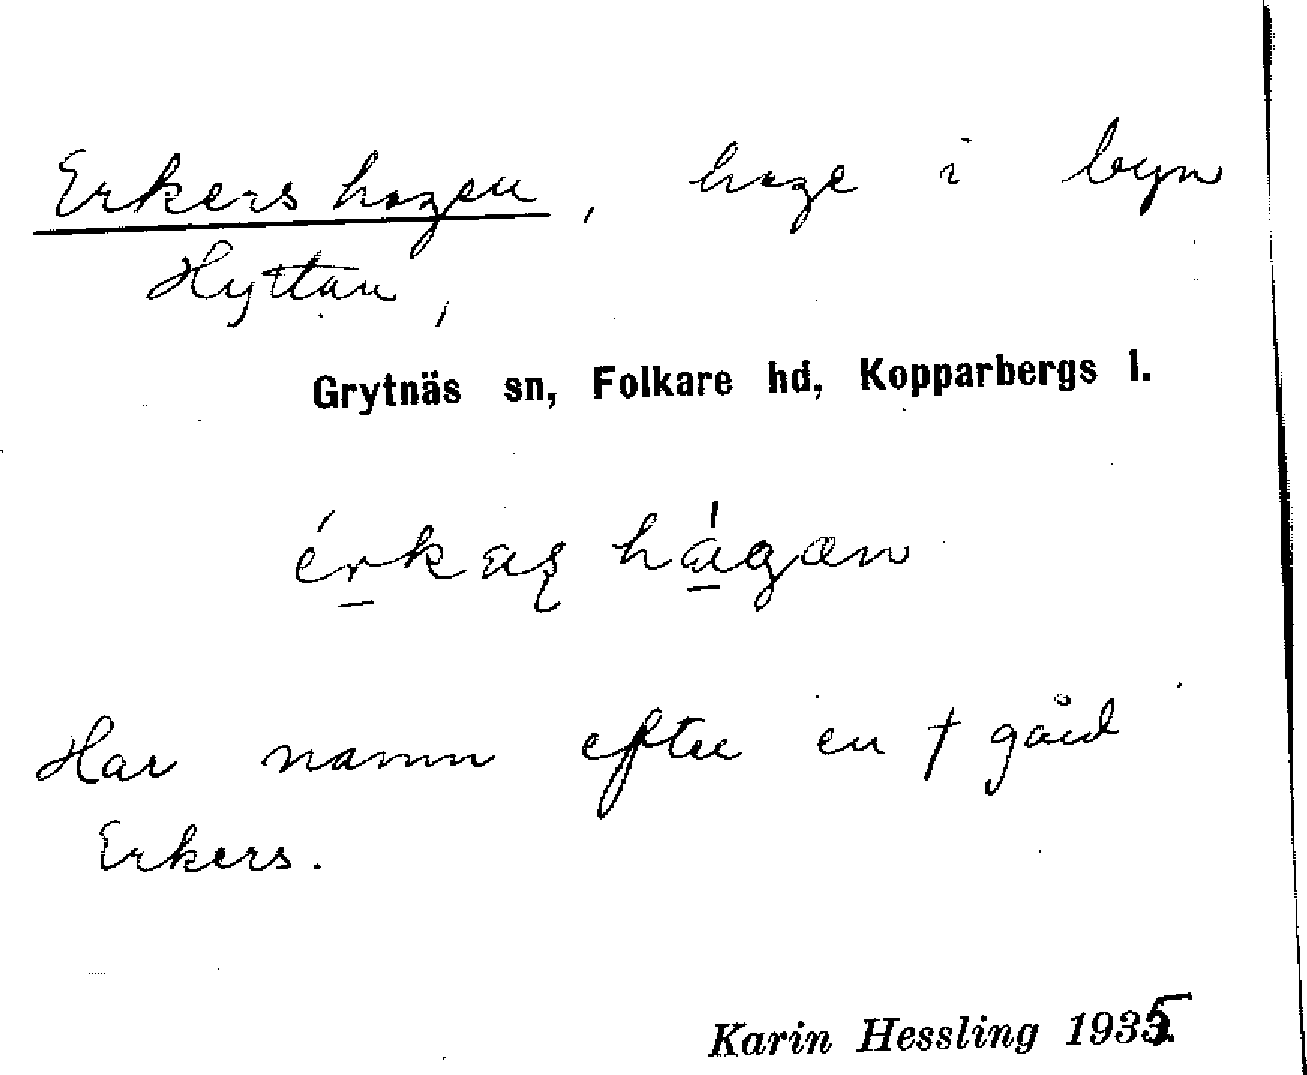 Erkers hagen, hage i byn
Hyttan,
Grytnäs sn, Folkare hd, Kopparbergs l.
érkas hágan
Har namn efter en † gård
Erkers.
Karin Hessling 1935